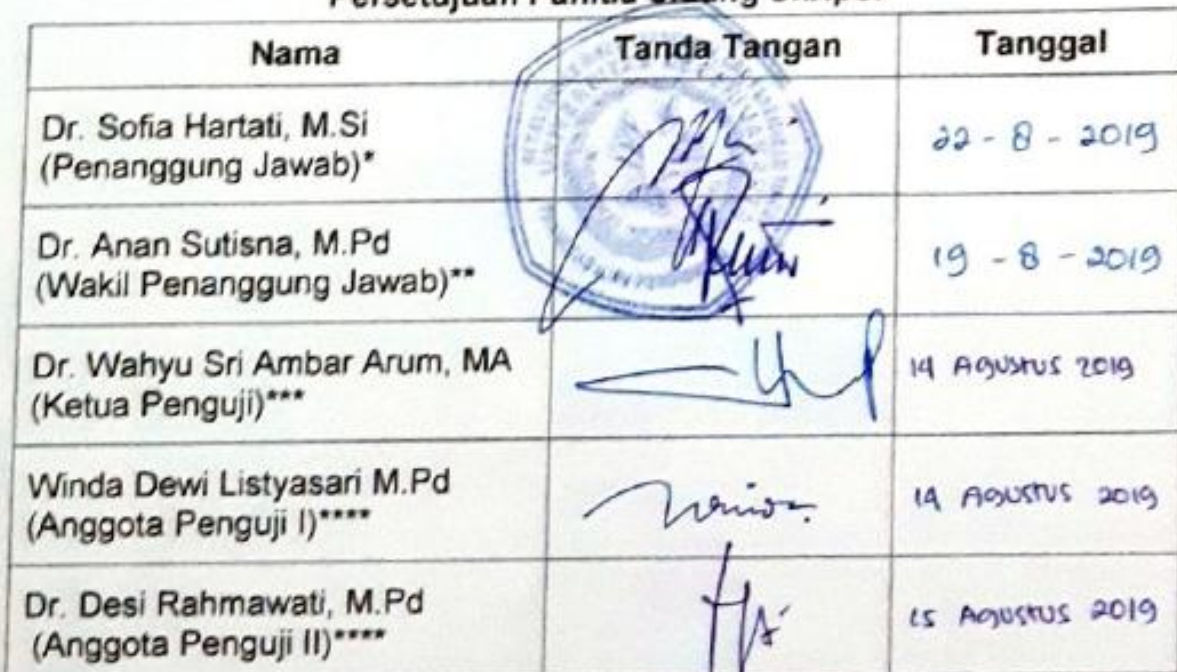 Persetujuan Panitia Sidang Skripsi
Nama Tanda Tangan Tanggal
Dr. Sofia Hartati, M.Si
(Penanggung Jawab)*
22 - 8 - 2019
Dr. Anan Sutisna, M.Pd
(Wakil Penanggung Jawab)**
19 - 8 - 2019
Dr. Wahyu Sri Ambar Arum, MA
(Ketua Penguji)***
14 Agustus 2019
Winda Dewi Listyasari M.Pd
(Anggota Penguji I)****
14 Agustus 2019
Dr. Desi Rahmawati, M.Pd
(Anggota Penguji II)****
15 Agustus 2019